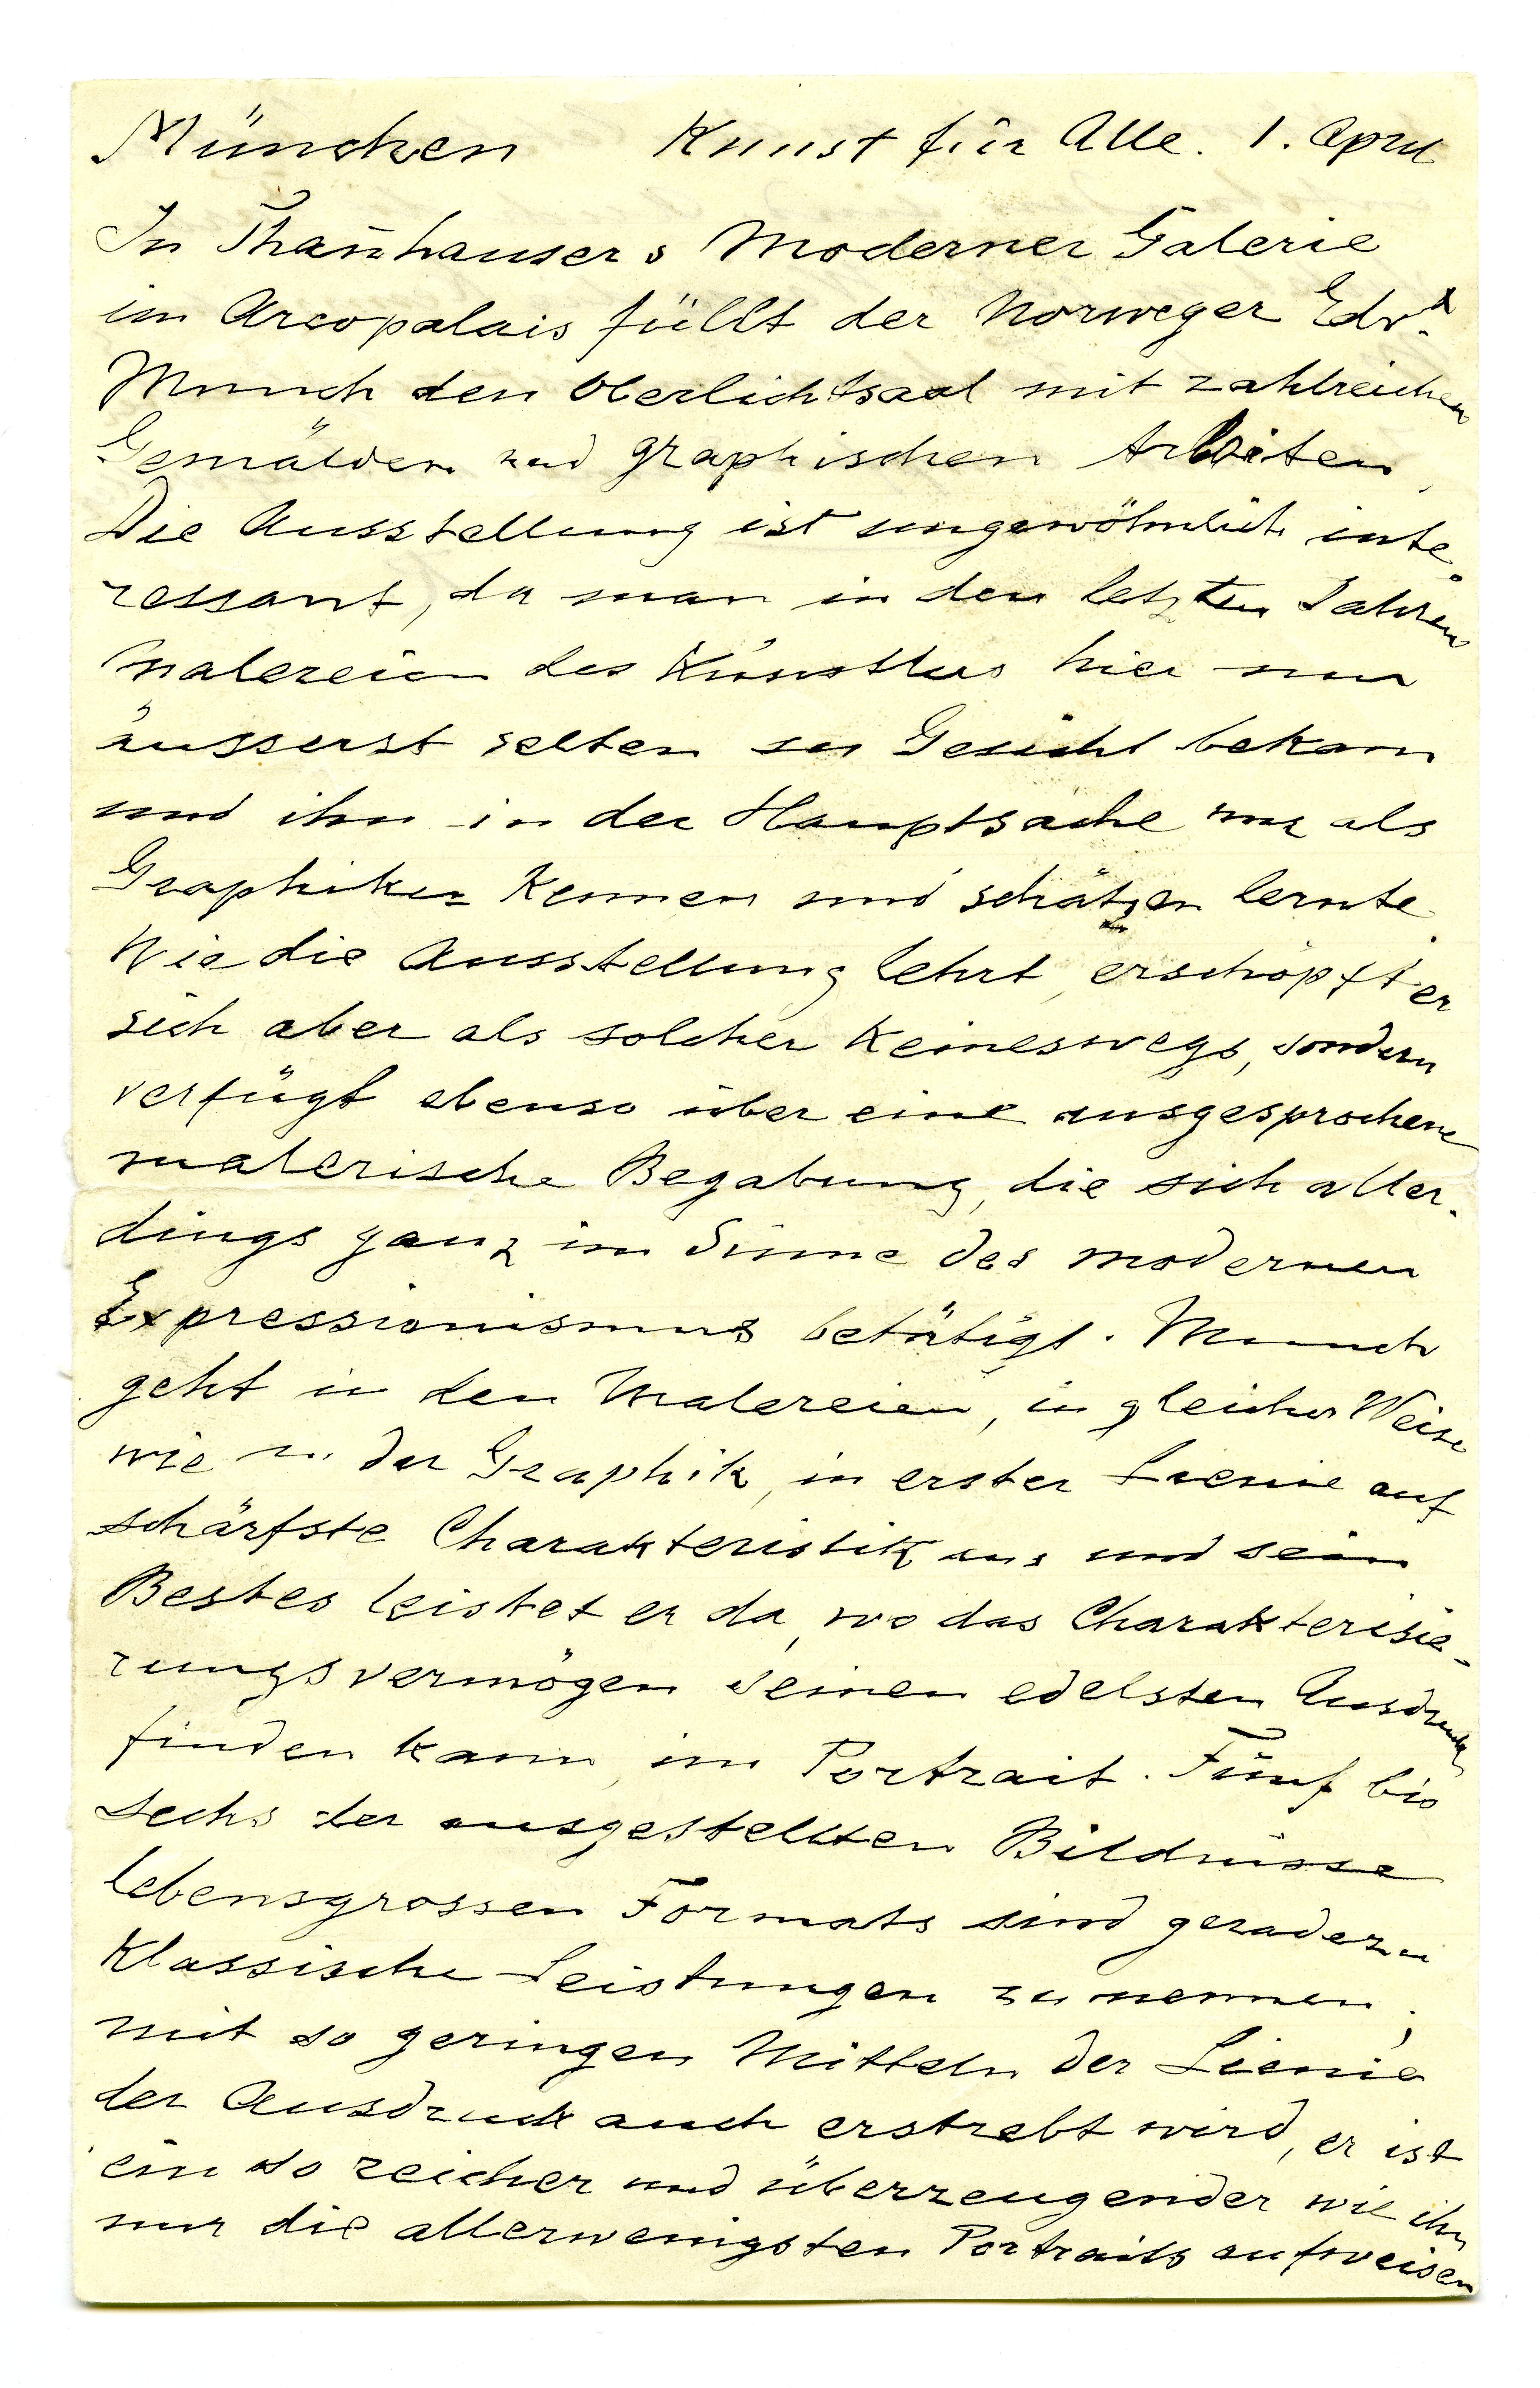 München Kunst für Alle. 1. April
In Than̄hausers Moderner Galerie
im Arcopalais füllt der Norweger Edvd.
Munch den Oberlichtsaal mit zahlreichen
Gemälden und graphischen Arbeiten.
Die Ausstellung ist ungewöhnlich inte-
ressant, da man in den letzten Jahren
Malereien des Künstlers hier nur
äusserst selten zu Gesicht bekam
und ihn in der Hauptsache nur als
Graphiker kennen und schätzen lernte.
Wie die Ausstellung lehrt, erschöpft er
sich aber als solcher keineswegs, sondern
verfügt ebenso über eine ausgesprochene
malerische Begabung, die sich aller-
dings ganz im Sinne des modernen
Expressionismus betätigt. Munch
geht in den Malereien, in gleicher Weise
wie in der Graphik, in erster Lienie auf
schärfste Charakteristik aus und sein
Bestes leistet er da, wo das Charakterisie-
rungsvermögen seinen edelsten Ausdruck
finden kann, im Portrait. Fünf bis
sechs der ausgestellten Bildnisse
lebensgrossen Formats sind geradezu
klassische Leistungen zu nennen;
mit so geringen Mitteln der Lienie
der Ausdruck auch erstrebt wird, er ist
ein so reicher und überzeugender wie ihn
nur die allerwenigsten Portraits aufweisen